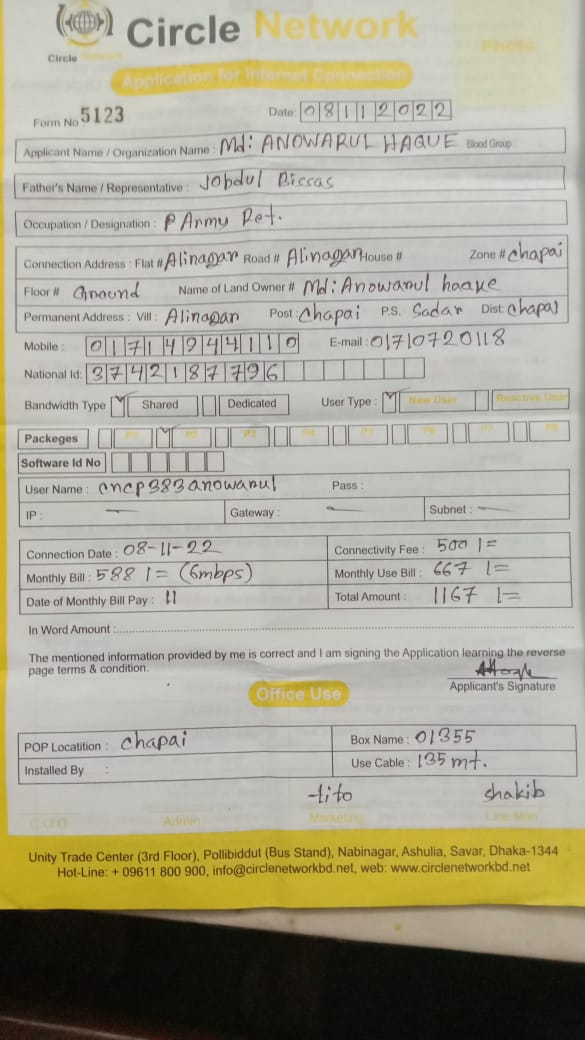 Circle Network
Circle
Photo
Application for Internet Connection
Form No 5123 Date: 08112022
Applicant Name / Organization Name : Md: ANOWARUL HAQUE Blood Group :
Father's Name / Representative : Jobdul Biccas
Occupation / Designation : P Army Ret.
Connection Address : Flat # Alinagar Road # Alinagar House # Zone # chapai
Floor # Ground Name of Land Owner # Md: Anowarul haque
Permanent Address : Vill : Alinagar Post : Chapai P.S. Sadar Dist: Chapai
Mobile : 01714944110 E-mail : 01710720118
National Id: 3742187796
Bandwidth Type Shared Dedicated User Type : New User Reactive User
Packeges P1 P2 P3 P4 P5 P6 P7 P8
Software Id No
User Name : cncp383anowarul Pass :
IP : — Gateway : — Subnet : —
Connection Date : 08-11-22 Connectivity Fee : 500 /=
Monthly Bill : 588 /= (6mbps) Monthly Use Bill : 667 /=
Date of Monthly Bill Pay : 11 Total Amount : 1167 /=
In Word Amount :
The mentioned information provided by me is correct and I am signing the Application learning the reverse
page terms & condition.
Applicant's Signature
Office Use
POP Locatition : Chapai Box Name : 01355
Installed By : Use Cable : 135 mt.
tito shakib
Admin Marketing Line Man
Unity Trade Center (3rd Floor), Pollibiddut (Bus Stand), Nabinagar, Ashulia, Savar, Dhaka-1344
Hot-Line: + 09611 800 900, info@circlenetworkbd.net, web: www.circlenetworkbd.net